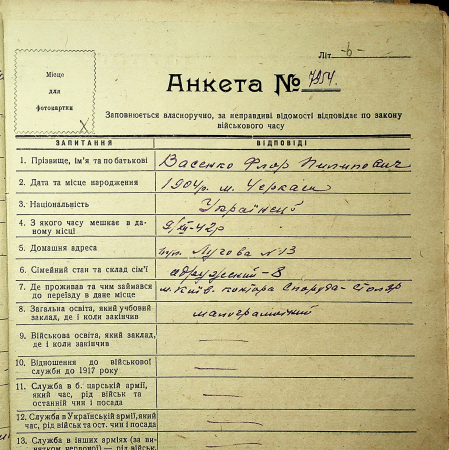 Літ -б-
Місце
для
фотокартки
Анкета № 7954.
Заповнюється власноручно, за неправдиві відомості відповідає по закону
військового часу
ЗАПИТАННЯ ВІДПОВІДІ
1. Прізвище, ім'я та по батькові Васенко Флор Пилипович
2. Дата та місце народження 1904р. м. Черкаси
3. Національність Українець
4. З якого часу мешкає в да-
ному місці 9/III-42р
5. Домашня адреса вул. Лугова №13
6. Сімейний стан та склад сім'ї одружений - 8
7. Де проживав та чим займався
до переїзду в дане місце м. Київ. контора Споруда - столяр
8. Загальна освіта, який учбовий
заклад, де і коли закінчив малограмотний
9. Військова освіта, який заклад,
де і коли закінчив —
10. Відношення до військової
служби до 1917 року —
11. Служба в б. царській армії,
який час, рід військ та
останній чин і посада —
12. Служба в Українській армії, який
час, рід військ та ост. чин і посада —
13. Служба в інших арміях (за ви-
нятком червоної) — рід військ,